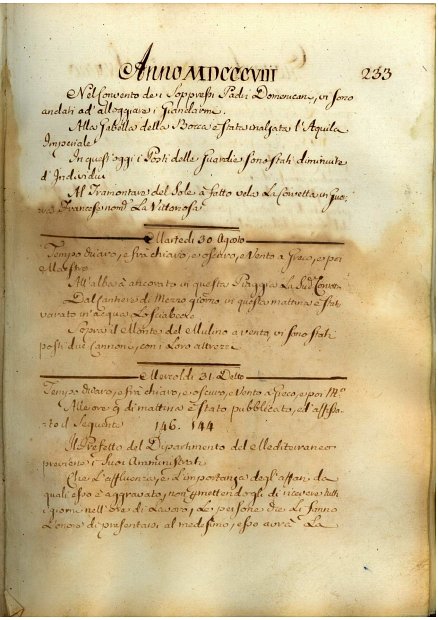 Anno MDCCCVIII 233
Nel Convento dei Soppressi Padri Domenicani, vi sono
andati ad'alloggiare i Giandarmi.
Alla Gabella della Bocca è stata inalzata l'Aquila
Imperiale
In quest'oggi i Posti delle Guardie sono stati diminuite
d'Individui
Al Tramontare del Sole à fatto vela La Corvetta in
Francese nom.ª La Vittoriosa
Martedì 30 Agosto
Tempo chiaro, e frà chiaro, e oscuro, e Vento a Greco, e poi
Maestro
All'alba à ancorato in questa Piaggia La Sud.ª Corvetta
Dal Cantiere di Mezzo giorno in questa mattina è stat
varato in acqua Lo Sciabecco
Sopra il Monte del Mulino a vento, vi sono stati
posti due Cannoni, con i Loro attrezzi
Mercoldì 31 Detto
Tempo chiaro, e frà chiaro, e oscuro, e Vento a Greco, e poi M.º
Alle ore 9 di mattina è stato pubblicato, ed affis
to il Sequente 146. 144
Il Prefetto del Dipartimento del Mediterraneo
previene i Suoi Amministrati
Che L'affluenza, e L'importanza degl'affari, da
quali esso è aggravato, non permettendogli di ricevere tutti
i giorni nell'ore di Lavoro, Le persone che Li fanno
L'onore di presentarsi al medesimo, esso avrà La